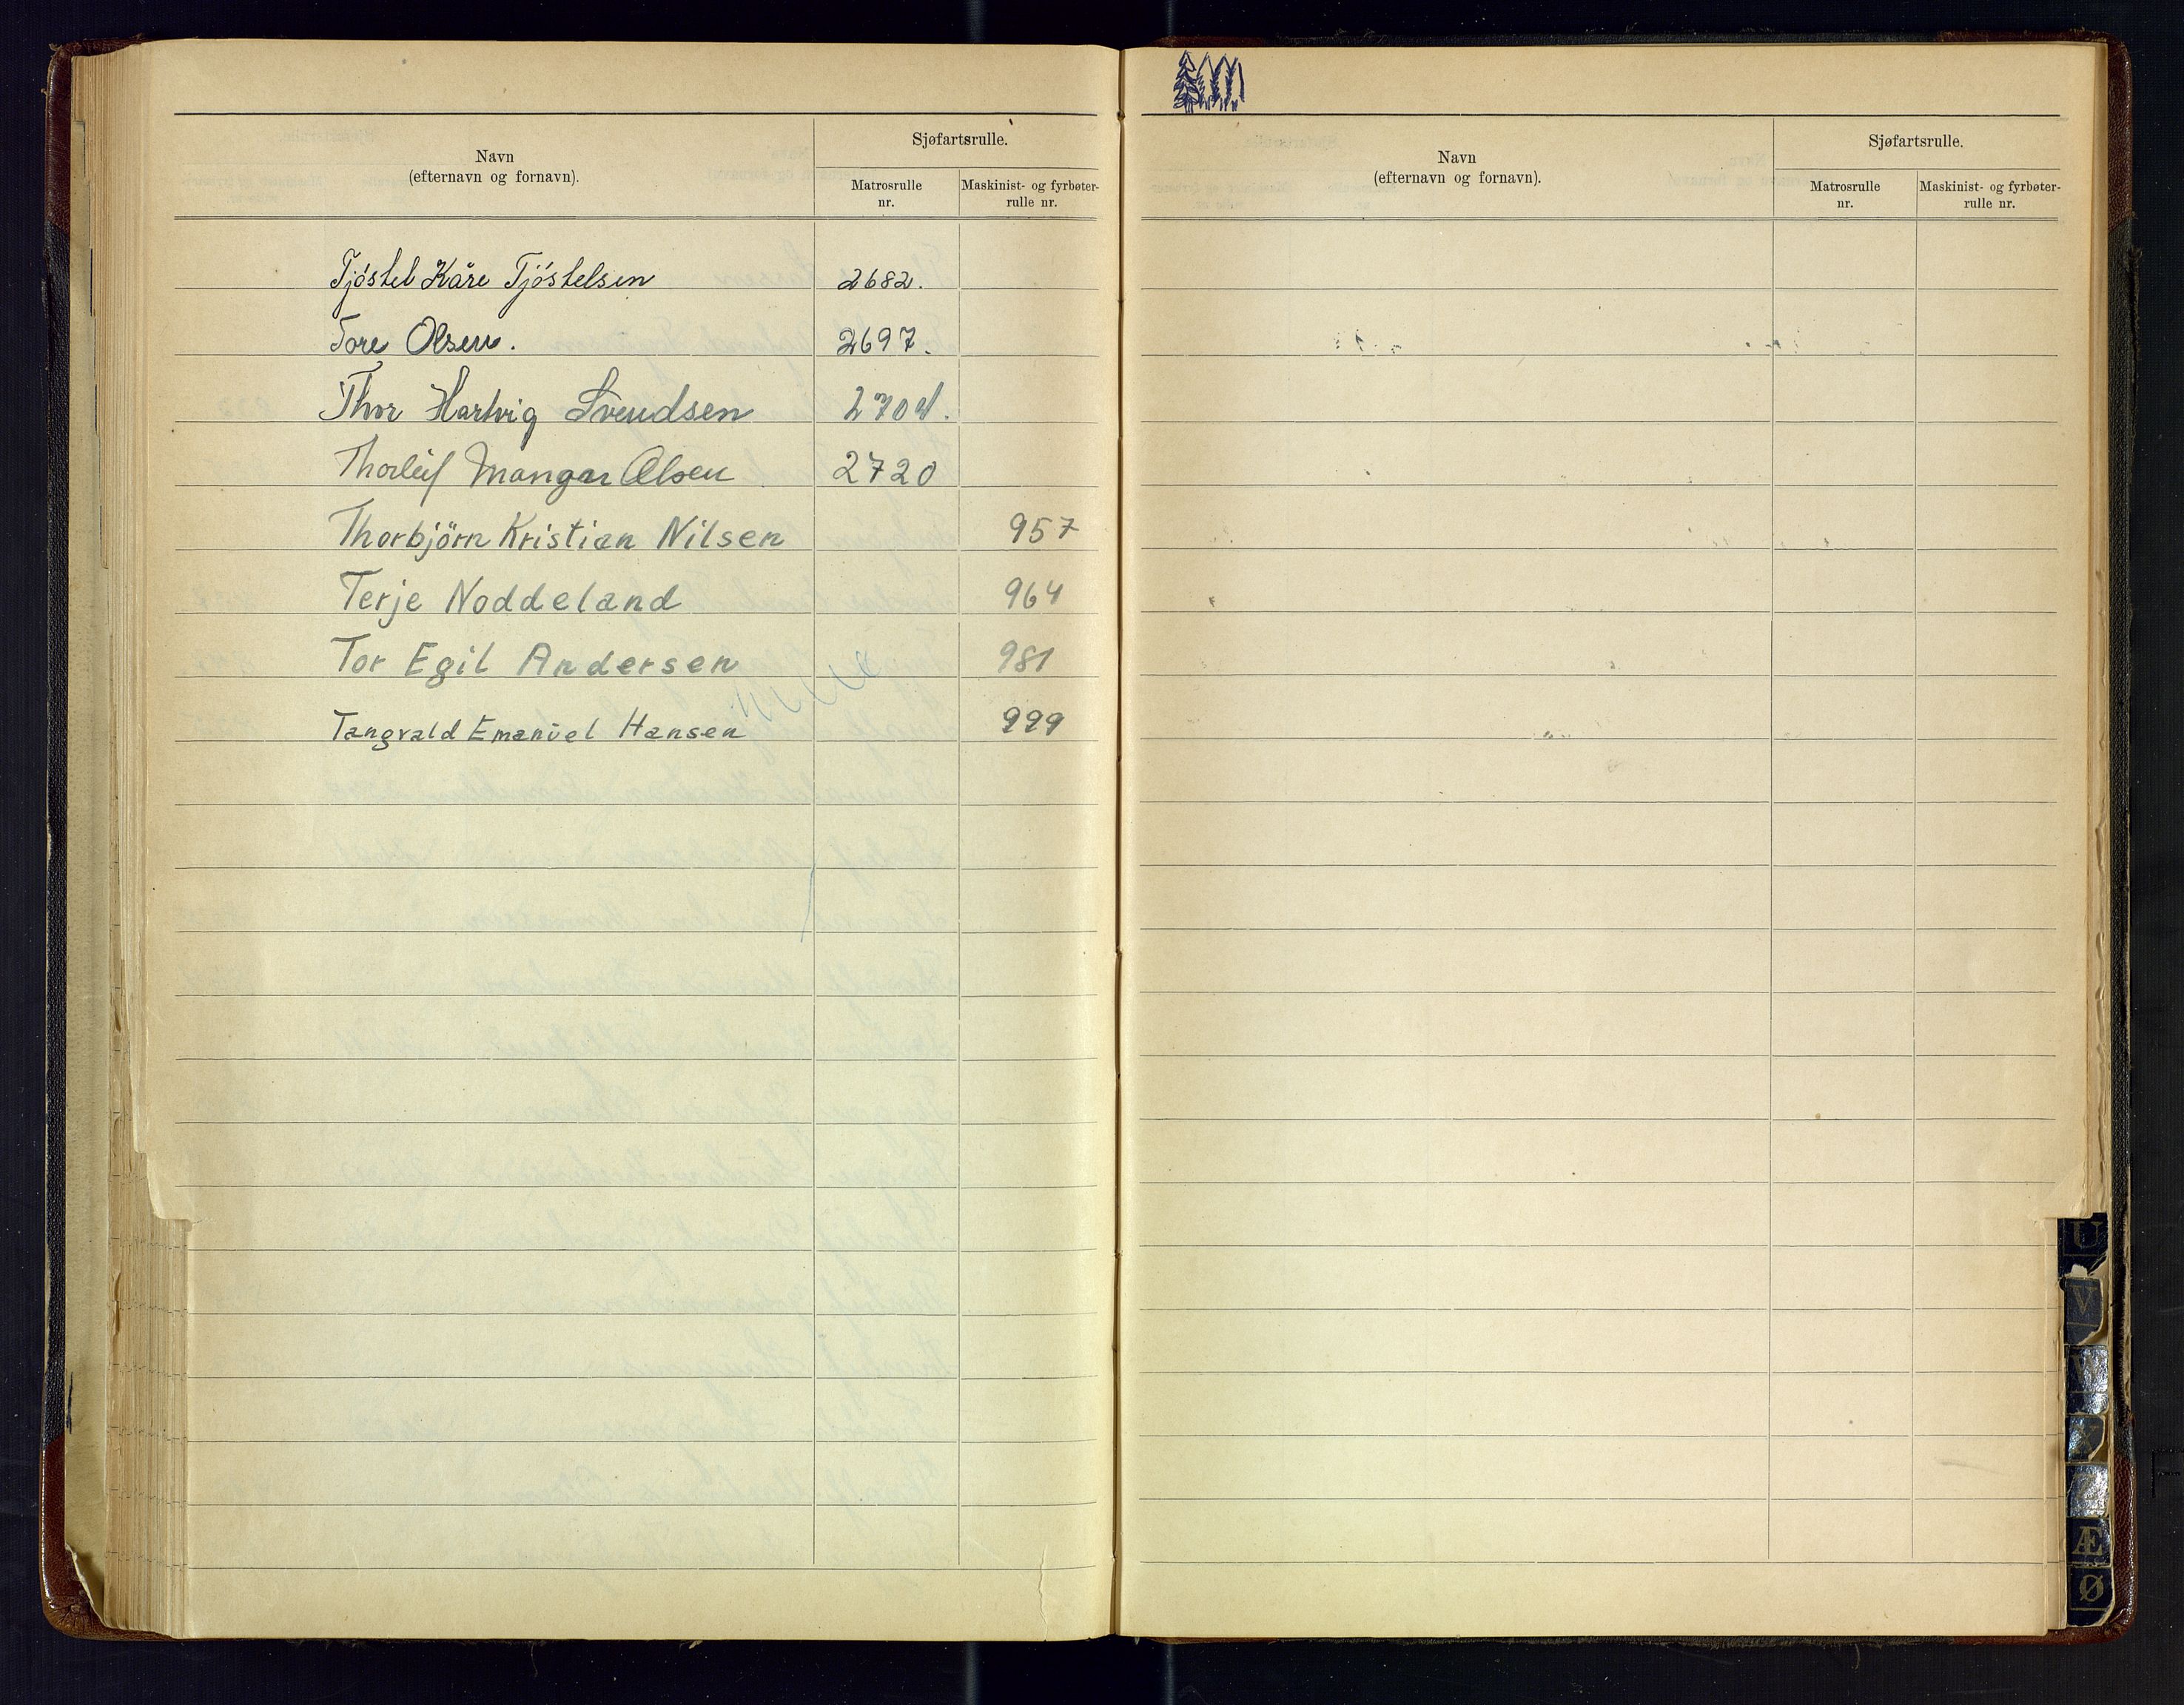 Navn
(efternavn og fornavn).
Sjøfartsrulle.
Matrosrulle
nr.
Maskinist- og fyrbøter-
rulle nr.
Tjöstel Kåre Tjöstelsen 2682.
Tore Olsen. 2697.
Thor Hartvig Svendsen 2704.
Thorleif Mangor Olsen 2720
Thorbjörn Kristian Nilsen 957
Terje Noddeland 964
Tor Egil Andersen 981
Tangvald Emanuel Hansen 999
Navn
(efternavn og fornavn).
Sjøfartsrulle.
Matrosrulle
nr.
Maskinist- og fyrbøter-
rulle nr.
U
V
W
X
Æ
Ø